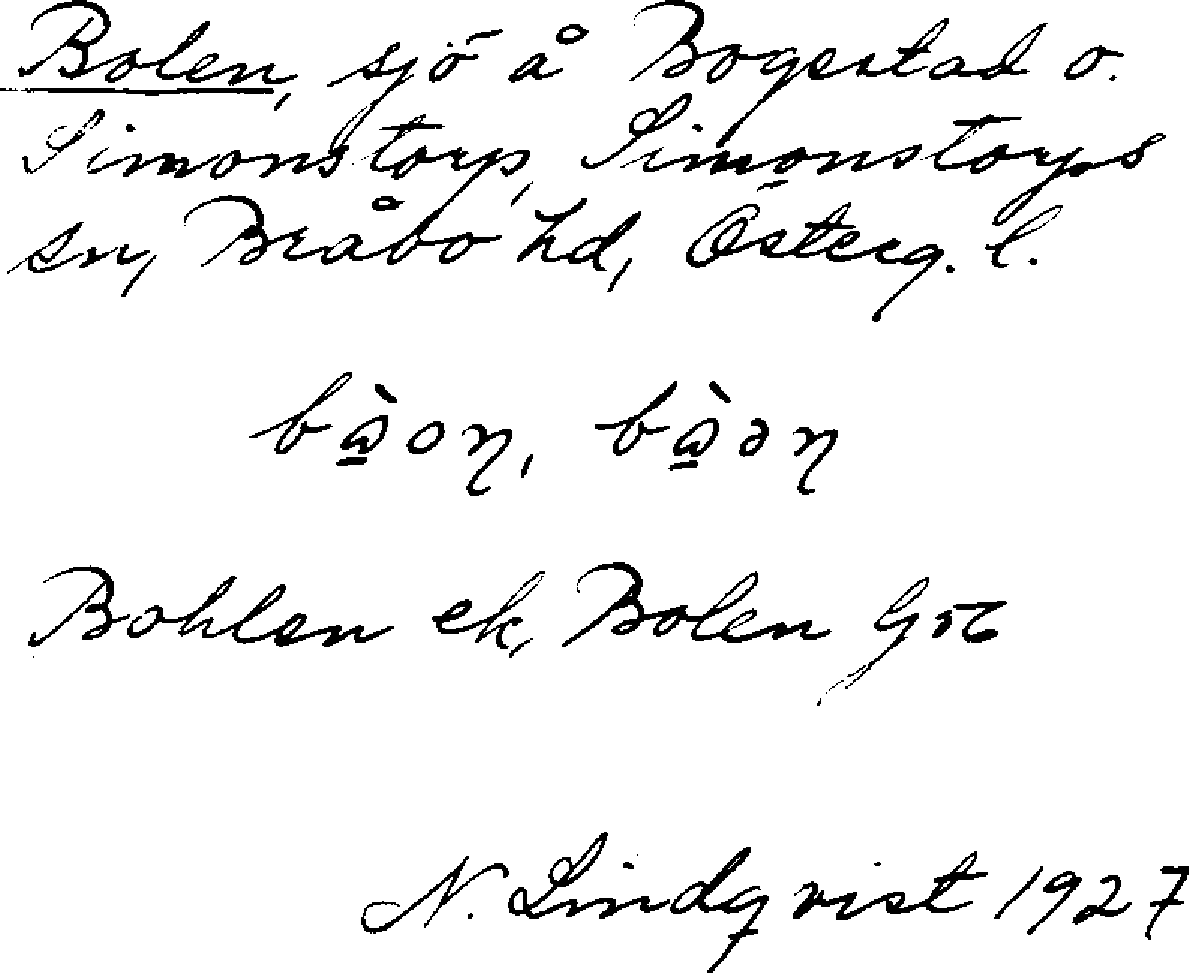 Bolen, sjö å Bogestad o.
Simonstorp, Simonstorps
sn, Bråbo hd, Österg. l.
Bohlen ek, Bolen Gsk
N. Lindqvist 1927